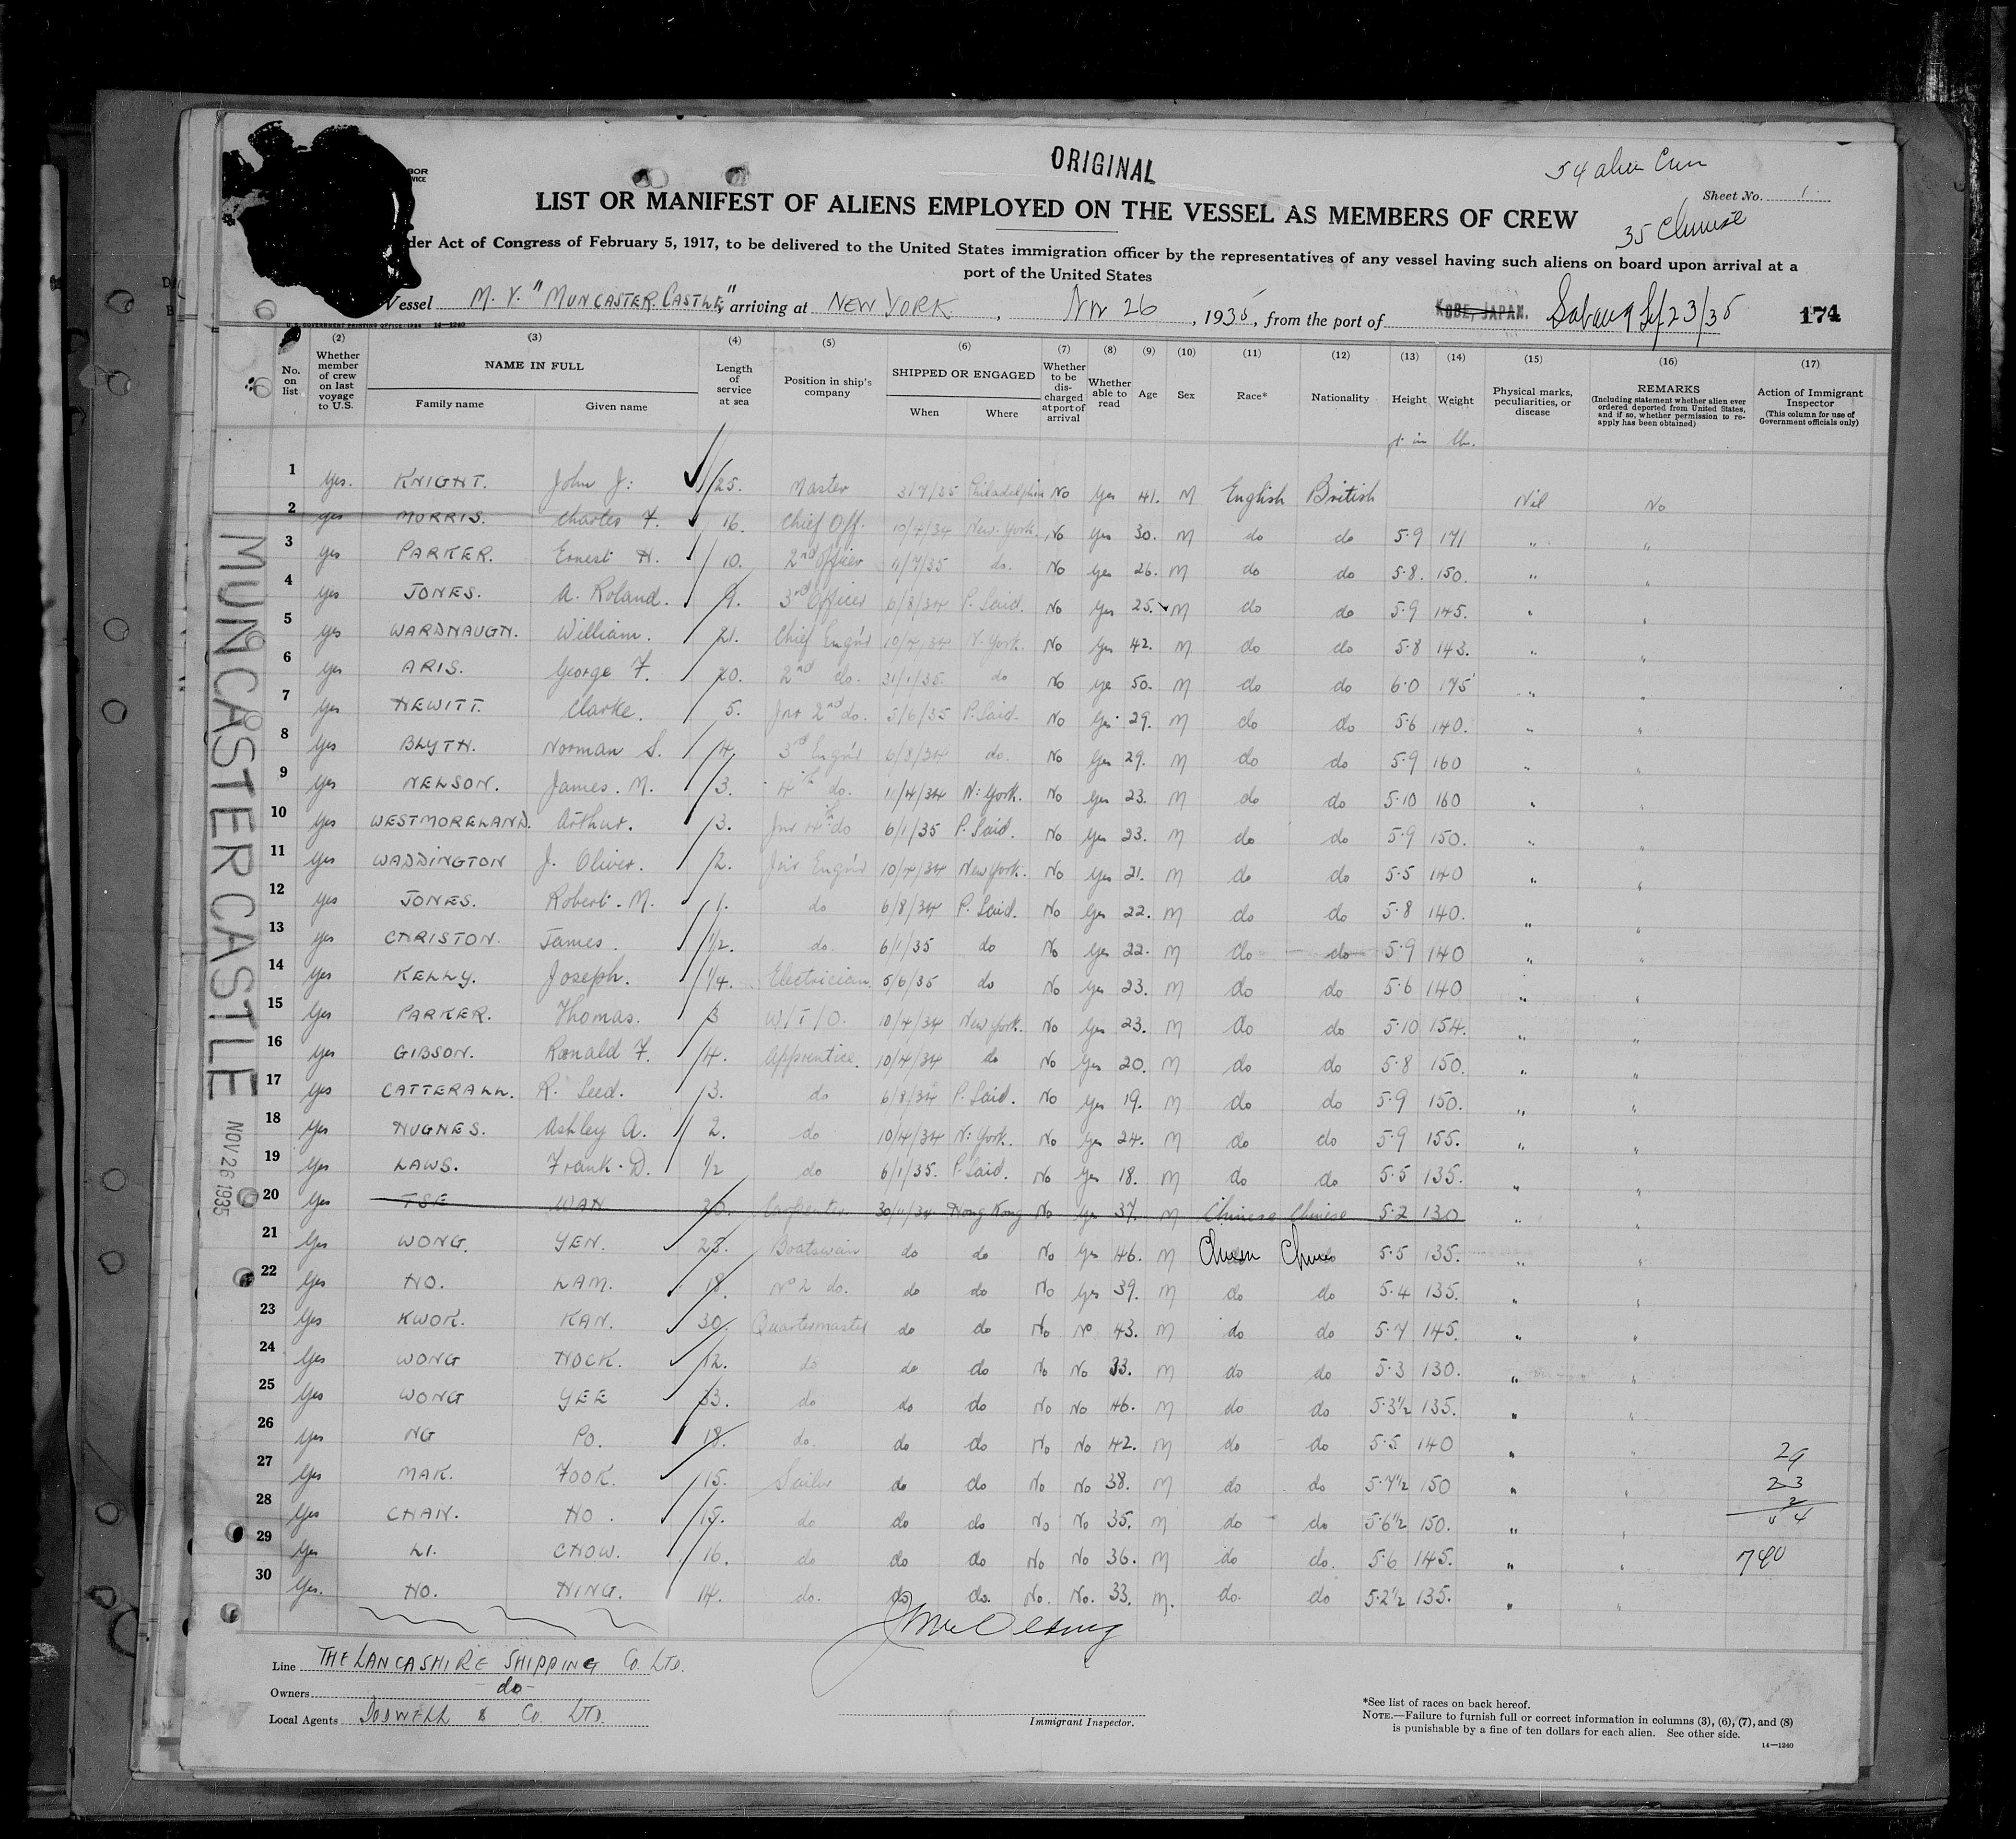 ORIGINAL
54 alien Crew
Sheet No. 1
LIST OR MANIFEST OF ALIENS EMPLOYED ON THE VESSEL AS MEMBERS OF CREW
35 Chinese
der Act of Congress of February 5, 1917, to be delivered to the United States immigration officer by the representatives of any vessel having such aliens on board upon arrival at a
port of the United States
Vessel M. V. "MUNCASTER CASTLE" arriving at NEW YORK, Nov 26, 1935, from the port of KOBE, JAPAN. Sabang 23/35 174
U.S. GOVERNMENT PRINTING OFFICE 14—1240
(2) (3) (4) (5) (6) (7) (8) (9) (10) (11) (12) (13) (14) (15) (16) (17)
No. on list Whether member of crew on last voyage to U.S. NAME IN FULL Family name Given name Length of service at sea Position in ship's company SHIPPED OR ENGAGED When Where Whether to be discharged at port of arrival Whether able to read Age Sex Race* Nationality Height Weight Physical marks, peculiarities, or disease REMARKS (Including statement whether alien ever ordered deported from United States, and if so, whether permission to reapply has been obtained) Action of Immigrant Inspector (This column for use of Government officials only)
ft in lb.
1 Yes. KNIGHT. John J. 25. Master 31/7/35 Philadelphia No Yes 41. M English British Nil No
2 yes MORRIS. Charles F. 16. Chief Off. 10/4/34 New York. No Yes 30. M do do 5·9 171 " "
3 yes PARKER. Ernest H. 10. 2nd Officer 11/7/35 do. No Yes 26. M do do 5·8. 150. " "
4 yes JONES. A. Roland. 9. 3rd Officer 6/8/34 P. Said. No Yes 25. M do do 5·9 145. " "
5 yes WARDNAUGH. William. 21. Chief Eng'r 10/4/34 N. York. No Yes 42. M do do 5·8 143. " "
6 yes ARIS. George F. 20. 2nd do. 31/1/35. do No ye 50. M do do 6·0 175 " "
7 yes HEWITT. Clarke. 5. Jnr 2nd do. 5/6/35 P. Said. No Yes 29. M do do 5·6 140. " "
8 yes BLYTH. Norman S. 4. 3rd Eng'r 6/8/34 do. No Yes 29. M do do 5·9 160 " "
9 yes NELSON. James. M. 3. 4th do. 10/4/34 N: York. No Yes 23. M do do 5·10 160 " "
10 yes WESTMORELAND. Arthur. 3. Jnr 4th do 6/1/35 P. Said. No Yes 23. M do do 5·9 150. " "
11 yes WADDINGTON J. Oliver. 2. Jnr Eng'r 10/4/34 New York. No Yes 21. M do do 5·5 140 " "
12 yes JONES. Robert. M. 1. do 6/8/34 P. Said. No Yes 22. M do do 5·8 140. " "
13 yes CHRISTON. James. 1/2. do. 6/1/35 do No yes 22. M do do 5·9 140 " "
14 yes KELLY. Joseph. 1/4. Electrician. 5/6/35 do No Yes 23. M do do 5·6 140 " "
15 Yes PARKER. Thomas. 3 W/T/O. 10/4/34 New York. No Yes 23. M do do 5·10 154. " "
16 Yes GIBSON. Ronald F. 4. Apprentice. 10/4/34 do No Yes 20. M do do 5·8 150. " "
17 Yes CATTERALL. R. Seed. 3. do 6/8/34 P. Said. No Yes 19. M do do 5·9 150. " "
18 Yes HUGHES. Ashley A. 2. do 10/4/34 N: York. No Yes 24. M do do 5·9 155. " "
19 Yes LAWS. Frank. D. 1/2 do 6/1/35. P. Said. No Yes 18. M do do 5·5 135. " "
20 Yes TSE WAH 20. Carpenter 30/11/34 Hong Kong No Yes 37. M Chinese Chinese 5·2 130 " "
21 Yes WONG. YEN. 25. Boatswain do do No Yes 46. M Chinese Chinese 5·5 135. " "
22 Yes HO. LAM. 18. No 2 do. do do No Yes 39. M do do 5·4 135. " "
23 Yes KWOK. KAN. 30. Quartermaster do do No No 43. M do do 5·7 145. " "
24 Yes WONG HOCK. 12. do do do No No 33. M do do 5·3 130. " "
25 Yes WONG YEE 23. do do do No No 46. M do do 5·3½ 135. " "
26 Yes NG PO. 18. do. do do No No 42. M do do 5·5 140 " "
27 Yes MAK. FOOK. 15. Sailor do do No No 38. M do do 5·7½ 150 " "
28 Yes CHAN. HO. 15. do do do No No 35. M do do 5·6½ 150. " "
29 Yes LI. CHOW. 16. do do do No No 36. M do do. 5·6 145. " "
30 Yes. HO. HING. 14. do. do do. No. No. 33. M. do. do 5·2½ 135. " "
29
23
2
54
740
MUNCASTER CASTLE
NOV 26 1935
Line THE LANCASHIRE SHIPPING Co. LTD.
Owners -do-
Local Agents DODWELL & Co. LTD.
Immigrant Inspector.
*See list of races on back hereof.
NOTE.—Failure to furnish full or correct information in columns (3), (6), (7), and (8)
is punishable by a fine of ten dollars for each alien. See other side.
14—1240